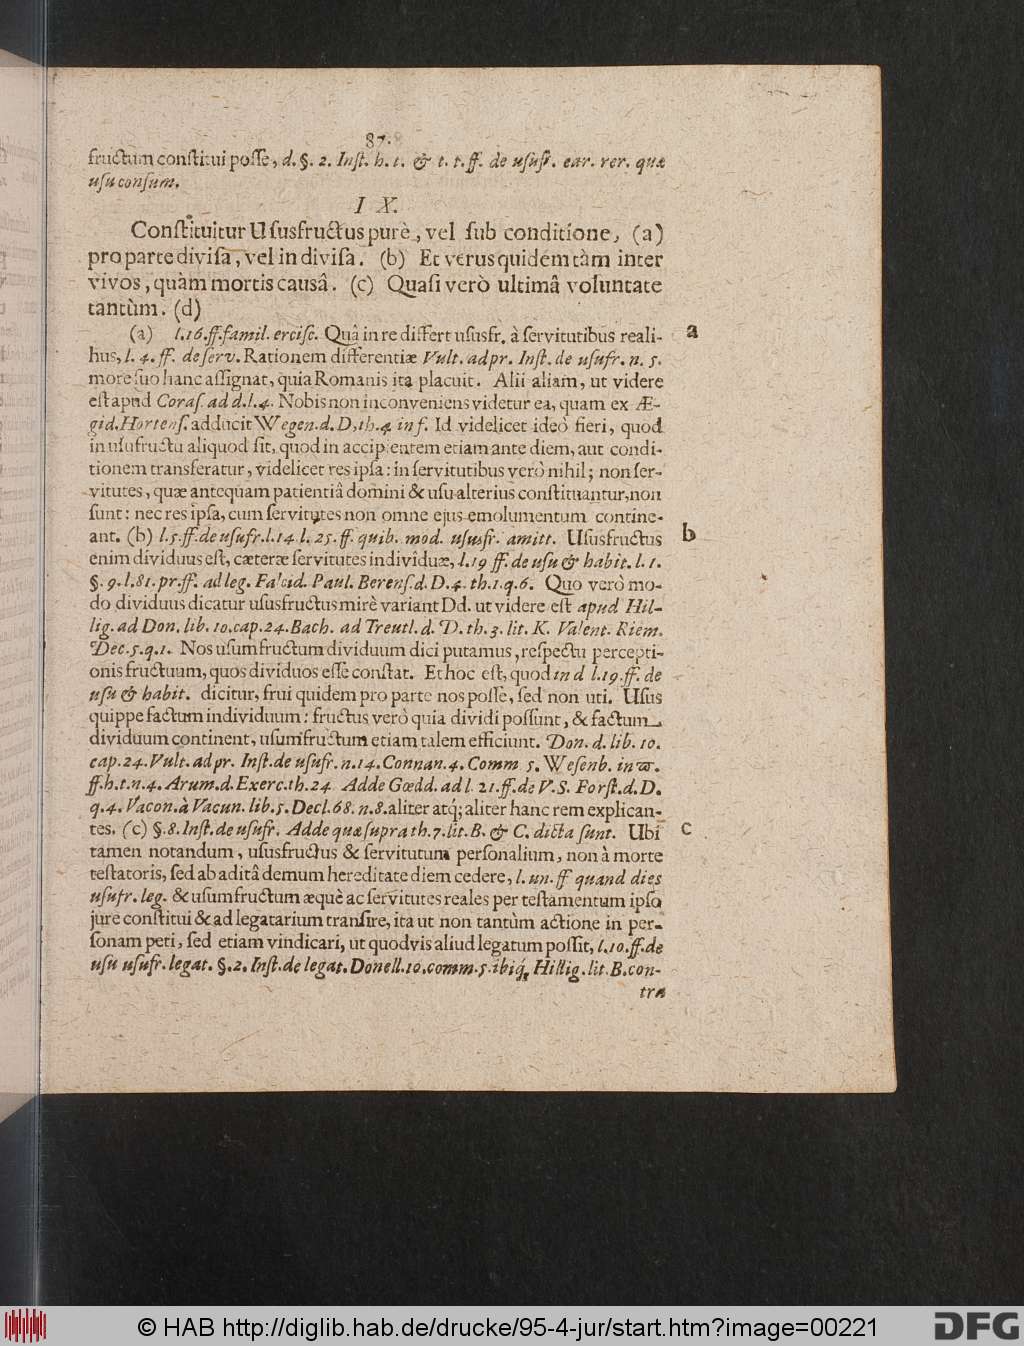 87.
fructum constitui posse, d. §. 2. Inst. h. t. & t. t. ff. de usufr. ear. rer. quæ
usu consum.
I X.
Constituitur Ususfructus purè, vel sub conditione, (a)
pro parte divisa, vel indivisa. (b) Et verus quidem tàm inter
vivos, quàm mortis causâ. (c) Quasi verò ultimâ voluntate
tantùm. (d)
(a) l. 16. ff. famil. ercisc. Quâ in re differt ususfr. à servitutibus reali- a
bus, l. 4. ff. de serv. Rationem differentiæ Vult. ad pr. Inst. de usufr. n. 5.
more suo hanc assignat, quia Romanis ita placuit. Alii aliam, ut videre
est apud Coras. ad d. l. 4. Nobis non inconveniens videtur ea, quam ex Æ-
gid. Hortens. adducit Wegen. d. D. th. 4. in f. Id videlicet ideò fieri, quod
in usufructu aliquod sit, quod in accipientem etiam ante diem, aut condi-
tionem transferatur, videlicet res ipsa: in servitutibus verò nihil; non ser-
vitutes, quæ antequam patientiâ domini & usu alterius constituantur, non
sunt: nec res ipsa, cum servitutes non omne ejus emolumentum contine-
ant. (b) l. 5. ff. de usufr. l. 14. l. 25. ff. quib. mod. ususfr. amitt. Ususfructus b
enim dividuus est, cæteræ servitutes individuæ, l. 19 ff. de usu & habit. l. 1.
§. 9. l. 81. pr. ff. ad leg. Falcid. Paul. Berens. d. D. 4. th. 1. q. 6. Quo verò mo-
do dividuus dicatur ususfructus mirè variant Dd. ut videre est apud Hil-
lig. ad Don. lib. 10. cap. 24. Bach. ad Treutl. d. D. th. 3. lit. K. Valent. Riem.
Dec. 5. q. 1. Nos usumfructum dividuum dici putamus, respectu percepti-
onis fructuum, quos dividuos esse constat. Et hoc est, quod in d l. 19. ff. de
usu & habit. dicitur, frui quidem pro parte nos posse, sed non uti. Usus
quippe factum individuum: fructus verò quia dividi possunt, & factum
dividuum continent, usumfructum etiam talem efficiunt. Don. d. lib. 10.
cap. 24. Vult. ad pr. Inst. de usufr. n. 14. Connan. 4. Comm 5. Wesenb. in ϖ.
ff. h. t. n. 4. Arum. d. Exerc. th. 24 Adde Gœdd. ad l 21. ff. de V. S. Forst. d. D.
q. 4. Vacon. à Vacun. lib. 5. Decl. 68. n. 8. aliter atq́; aliter hanc rem explican-
tes. (c) §. 8. Inst. de usufr. Adde quæ supra th. 7. lit. B. & C. dicta sunt. Ubi c
tamen notandum, ususfructus & servitutum personalium, non à morte
testatoris, sed ab aditâ demum hereditate diem cedere, l. un. ff quand dies
usufr. leg. & usumfructum æquè ac servitutes reales per testamentum ipso
jure constitui & ad legatarium transire, ita ut non tantùm actione in per-
sonam peti, sed etiam vindicari, ut quodvis aliud legatum possit, l. 10. ff. de
usu usufr. legat. §. 2. Inst. de legat. Donell. 10. comm. 5. ibiq́, Hillig. lit. B. con-
tra
© HAB http://diglib.hab.de/drucke/95-4-jur/start.htm?image=00221
DFG